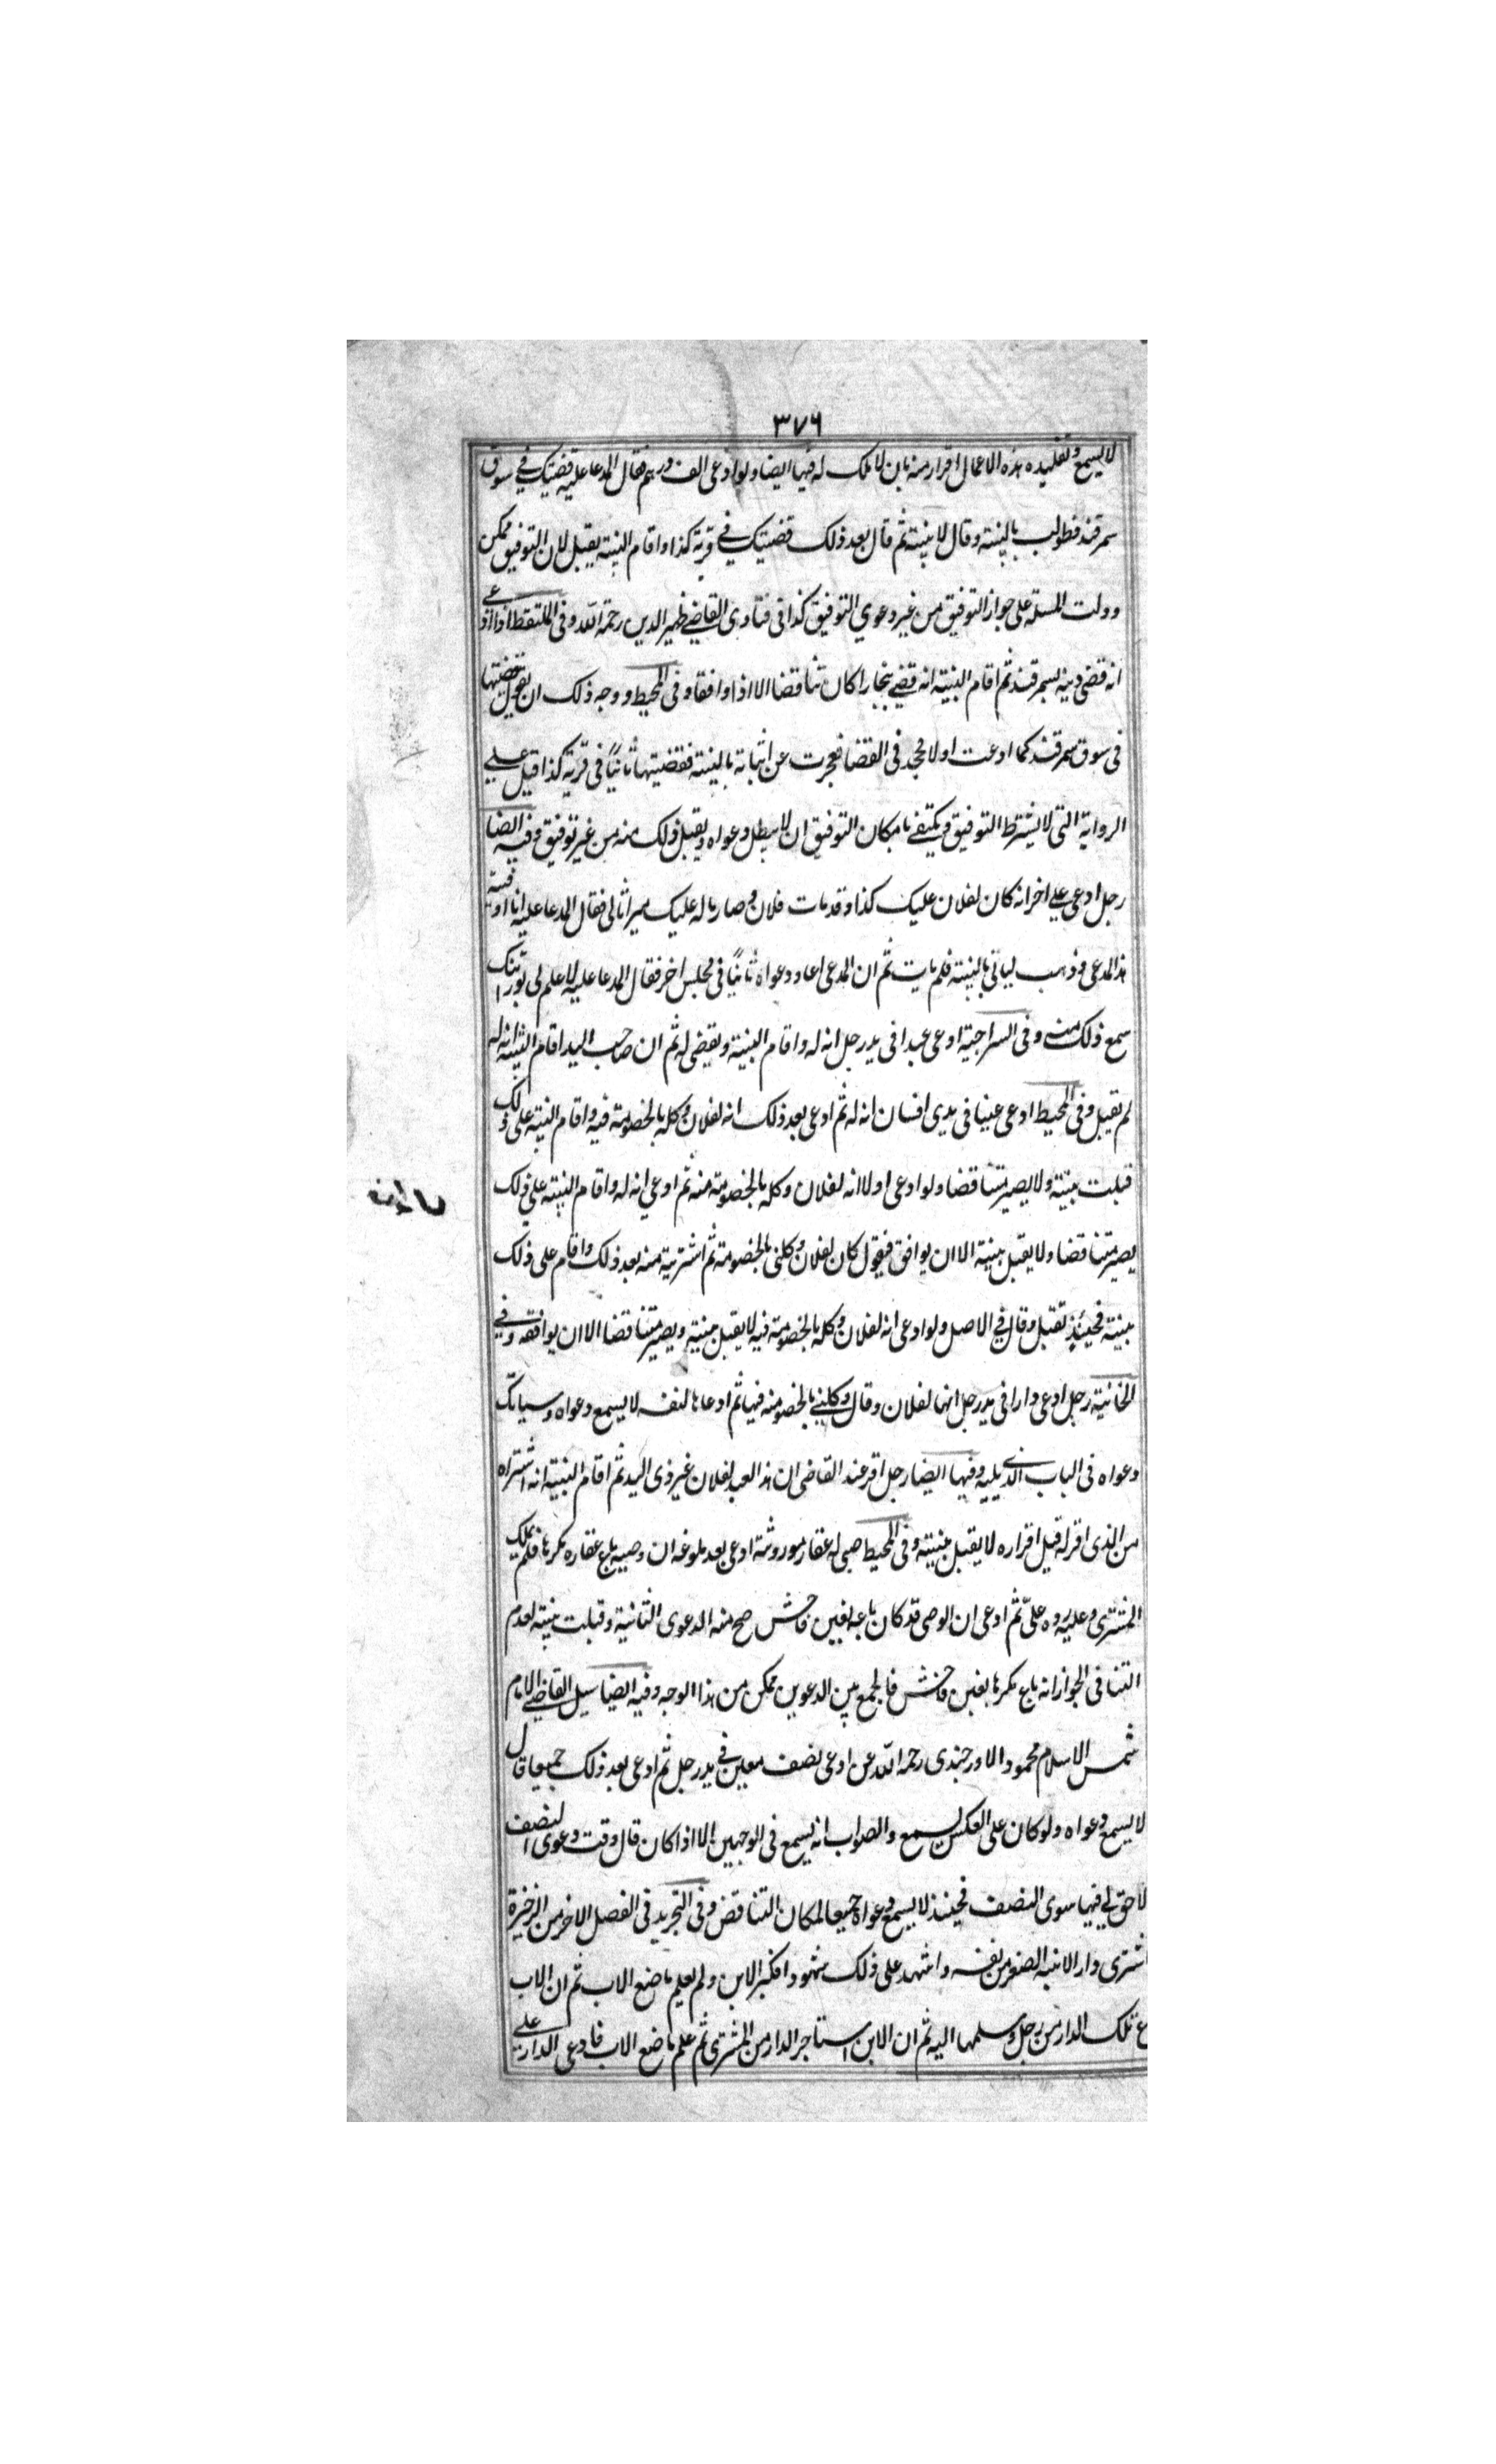 ٣٧٦
لا يسمع وتقليده هذه الاعمال اقرار منه بان لا ملك له فيها ايضا ولو ادعى الف درهم فقال المدعا عليه قضيتك في سوق
سمرقند فطولب بالبينة وقال لا بينة ثم قال بعد ذلك قضيتك في قرية كذا واقام البينة يقبل لان التوفيق ممكن
ودلت المسئلة على جواز التوفيق من غير دعوي التوفيق كذا في فتاوى القاضي ظهير الدين رحمة الله وفي الملتقط اذا ادعى
انه قضى دينه بسمرقند ثم اقام البينة انه قضي ببخارا كان تناقضا الا اذا وافقا وفي المحيط ووجه ذلك ان يقول قضيتها
في سوق سمرقند كما ادعت اولا فجحد في القضا فعجزت عن اثباته بالبينة فقضيتها ثانيًا في قرية كذا قيل علي
الرواية التي لا يشترط التوفيق ويكتفي بامكان التوفيق ان لا يبطل دعواه ويقبل ذلك منه من غير توفيق وفيه ايضا
رجل ادعى علي اخر انه كان لفلان عليك كذا وقد مات فلان وصار ماله عليك ميراثا لي فقال المدعا عليه انا اوفيته
هذا المدعى وذهب لياتي بالبينة فلم يات ثم ان المدعى اعاد دعواه ثانيًا في مجلس اخر فقال المدعا عليه لا علم لي بوراثتك
سمع ذلك منه وفي السراجية ادعى عبدا في يد رجل انه له واقام البينة ويقضى له ثم ان صاحب اليد اقام البينة انه له
لم يقبل وفي المحيط ادعى عينا في يدي انسان انه له ثم ادعى بعد ذلك انه لفلان وكله بالخصومة فيه واقام البينة على ذلك
قبلت بينته ولا يصير متناقضا ولو ادعى اولا انه لفلان وكله بالخصومة منه ثم ادعي انه له واقام البينة علي ذلك
يصير متناقضا ولا يقبل بينته الا ان يوافق فيقول كان لفلان وكلني بالخصومة ثم اشتريته منه بعد ذلك واقام على ذلك
بينة فحينئذ تقبل وقال في الاصل ولو ادعى انه لفلان وكله بالخصومة فيه لا يقبل بينته ويصير متناقضا الا ان يوافقه وفي
الخانية رجل ادعى دارا في يد رجل انها لفلان وقال وكلني بالخصومة فيها ثم ادعاها لنفسه لا يسمع دعواه وسياتك
دعواه في الباب الذي يليه وفيها ايضا رجل اقر عند القاضي ان هذا العبد لفلان غير ذي اليد ثم اقام البينة انه اشتراه
من الذى اقر له قبل اقراره لا يقبل بينته وفي المحيط صبي له عقار موروثة ادعى بعد بلوغه ان وصيه باع عقاره مكرها فلم يملك
المشترى وعليه رده علىّ ثم ادعى ان الوصى قد كان باعه بغبن فاحش صح منه الدعوى الثانية وقبلت بينته لعدم
التنافي لجواز انه باع مكرها بغبن فاحش فالجمع بين الدعوين ممكن من هذا الوجه وفيه ايضا سيل القاضي الامام
شمس الاسلام محمود الاورجندى رحمه الله عن ادعى نصف معين في يد رجل ثم ادعى بعد ذلك جميعا قال
لا يسمع دعواه ولو كان على العكس يسمع والصواب انه يسمع في الوجهين الا اذا كان قال وقت دعوى النصف
لا حق لي فيها سوى النصف فحينئذ لا يسمع دعواه جميعا لمكان التناقض وفي التجريد في الفصل الاخر من الزخيرة
اشترى دار الابنه الصغير من نفسه واشهد على ذلك شهودا فكبر الابن ولم يعلم ما صنع الاب ثم ان الاب
ع تلك الدار من رجل وسلمها اليه ثم ان الابن استاجر الدار من المشترى ثم علم ما صنع الاب فادعى الدار علي